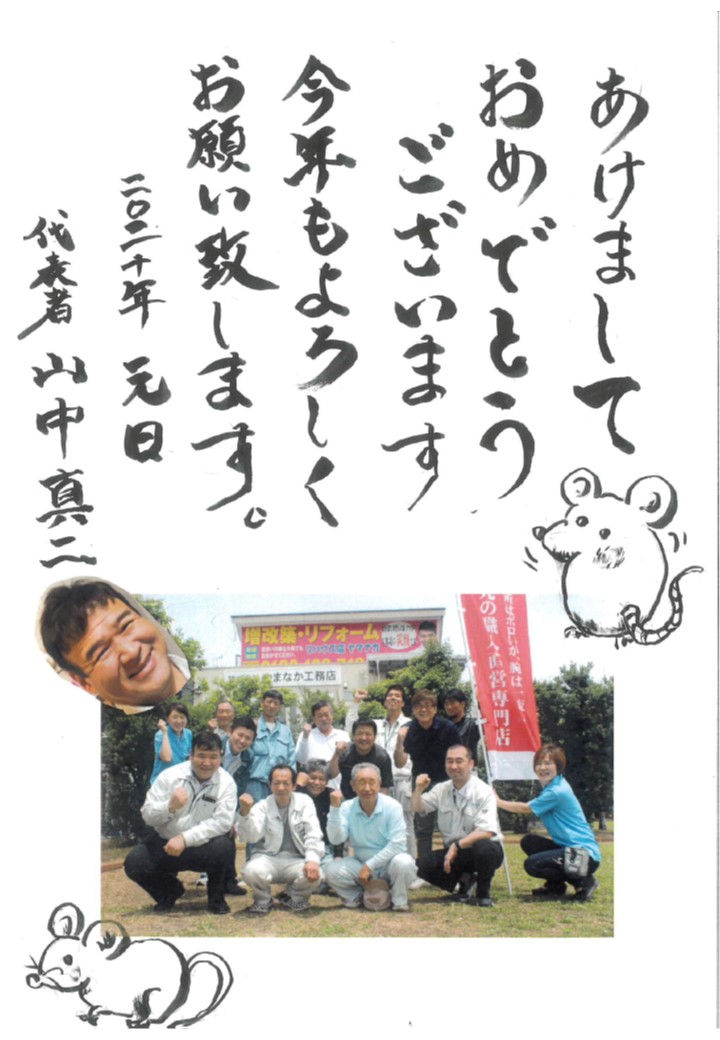 あけまして
おめでとう
ございます
今年もよろしく
お願い致します。
二〇二十年 元日
代表者 山中真二
増改築・リフォーム
やまなか工務店
元の職人直営専門店